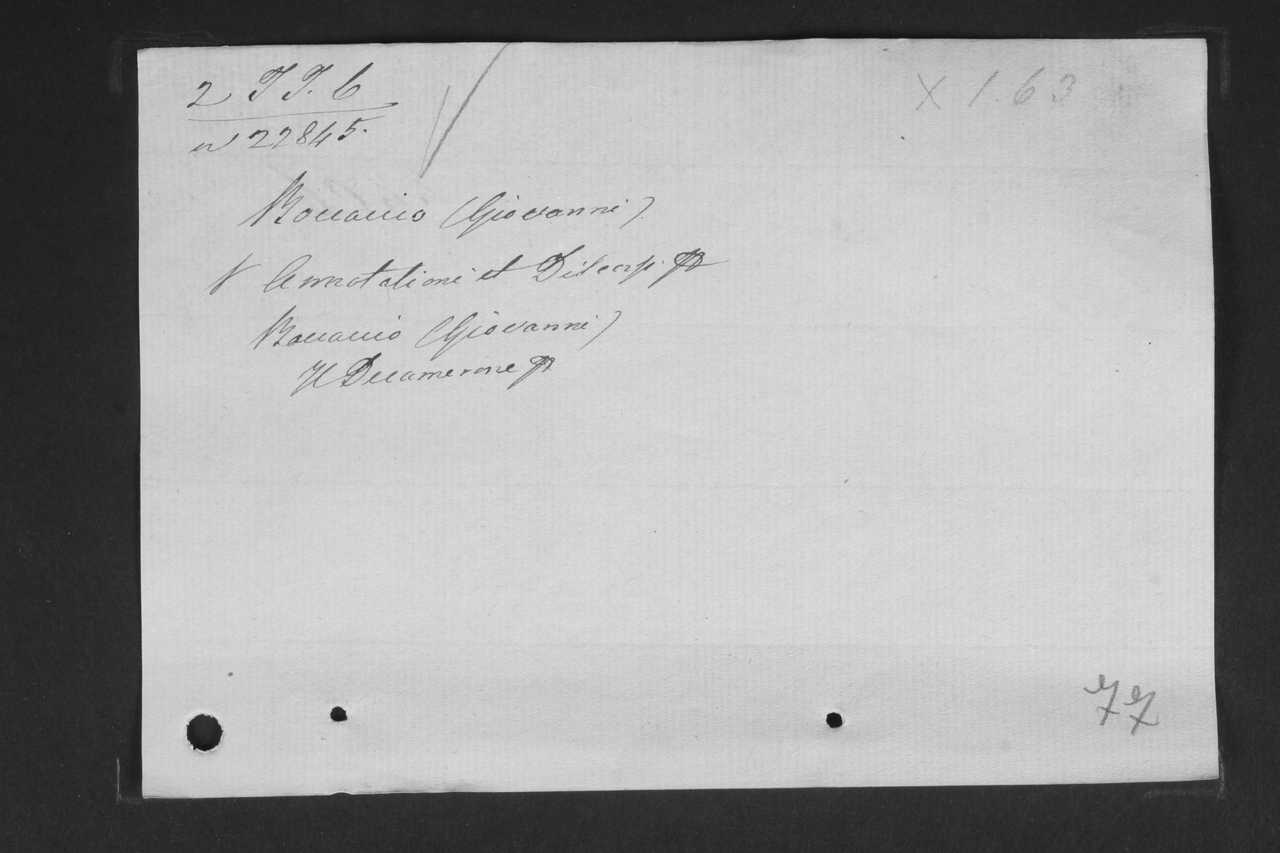 2 T T. 6
X 1.63
nº 22845.
Boccaccio (Giovanni)
Annotationi et Discorsi
Boccaccio (Giovanni)
Il Decamerone
77